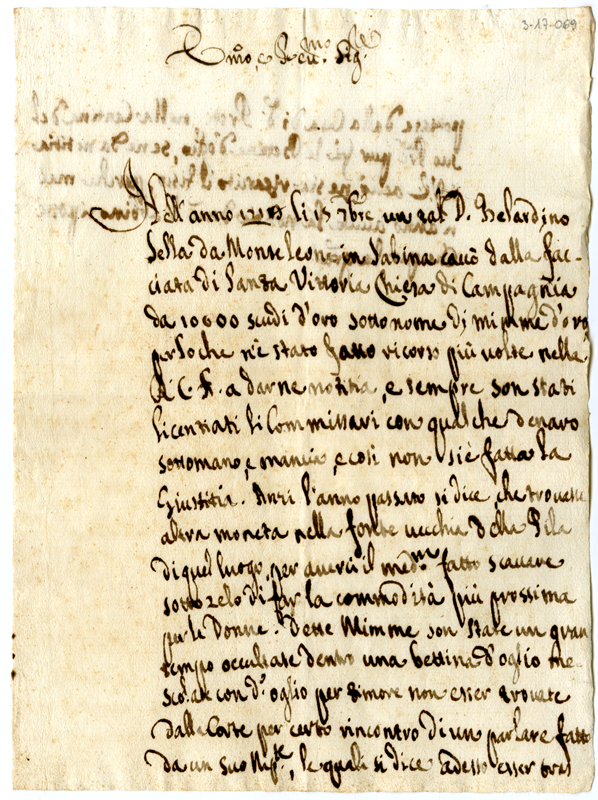 3-17-069
Ill.mo, e Rev.mo Sig.re
Nell'anno li 15 7bre, un tal D. Belardino
Sella da Monteleone in Sabina cavò dalla fac-
ciata di Santa Vittoria Chiesa di Campagnia
da 10000 scudi d'oro sotto nome di mimme d'oro
per lo che n'è stato fatto ricorso più volte nella
R. C. A. a darne notitia, e sempre son stati
licentiati li Commissari con qualche denaro
sottomano, e mancia, e così non si è fatta la
Giustitia. Anzi l'anno passato si dice, che trovasse
altra moneta nella fonte vecchia della Pila
di quel luogo, per averci il med.mo fatto scavare
sotto zelo di far la commodità più prossima
per le Donne. Dette Mimme son state un gran
tempo occultate dentro una bettina d'oglio me-
scolate con d.o oglio per timore non esser trovate
dalla Corte per certo rincontro di un parlare fatto
da un suo Nip.te, le quali si dice adesso esser